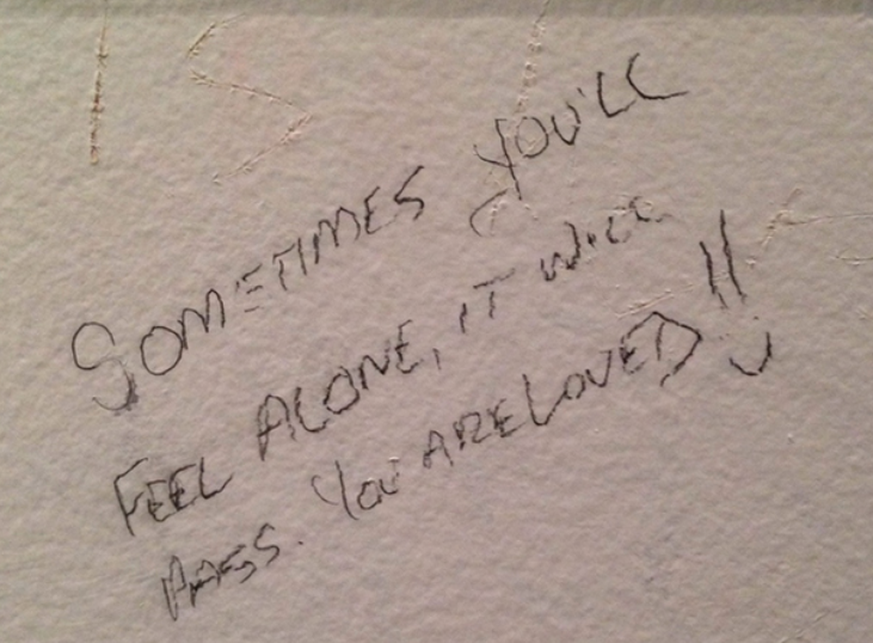 SOMETIMES YOU'LL
FEEL ALONE, IT WILL
PASS. YOU ARE LOVED!!